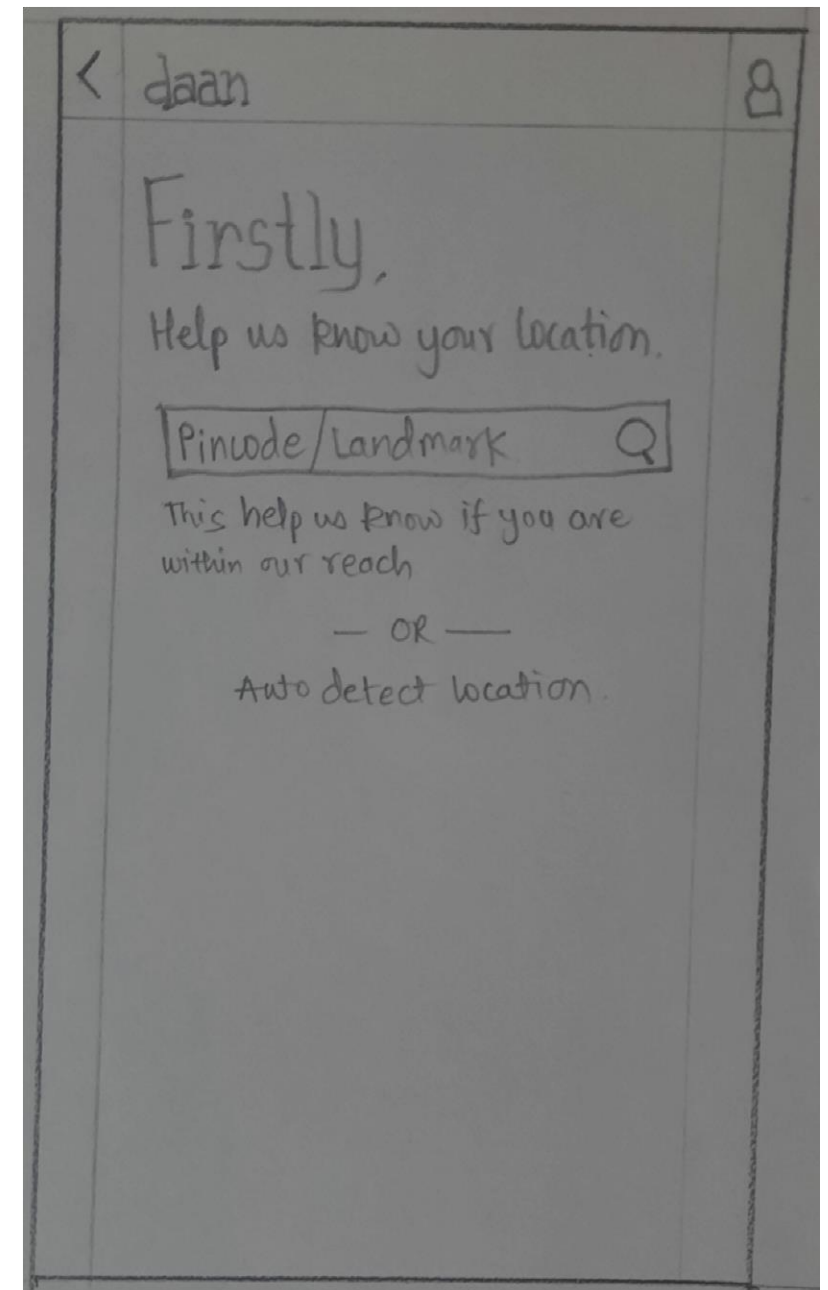 < daan
Firstly,
Help us know your location.
Pincode/Landmark
This help us know if you are
within our reach
— OR —
Auto detect location.